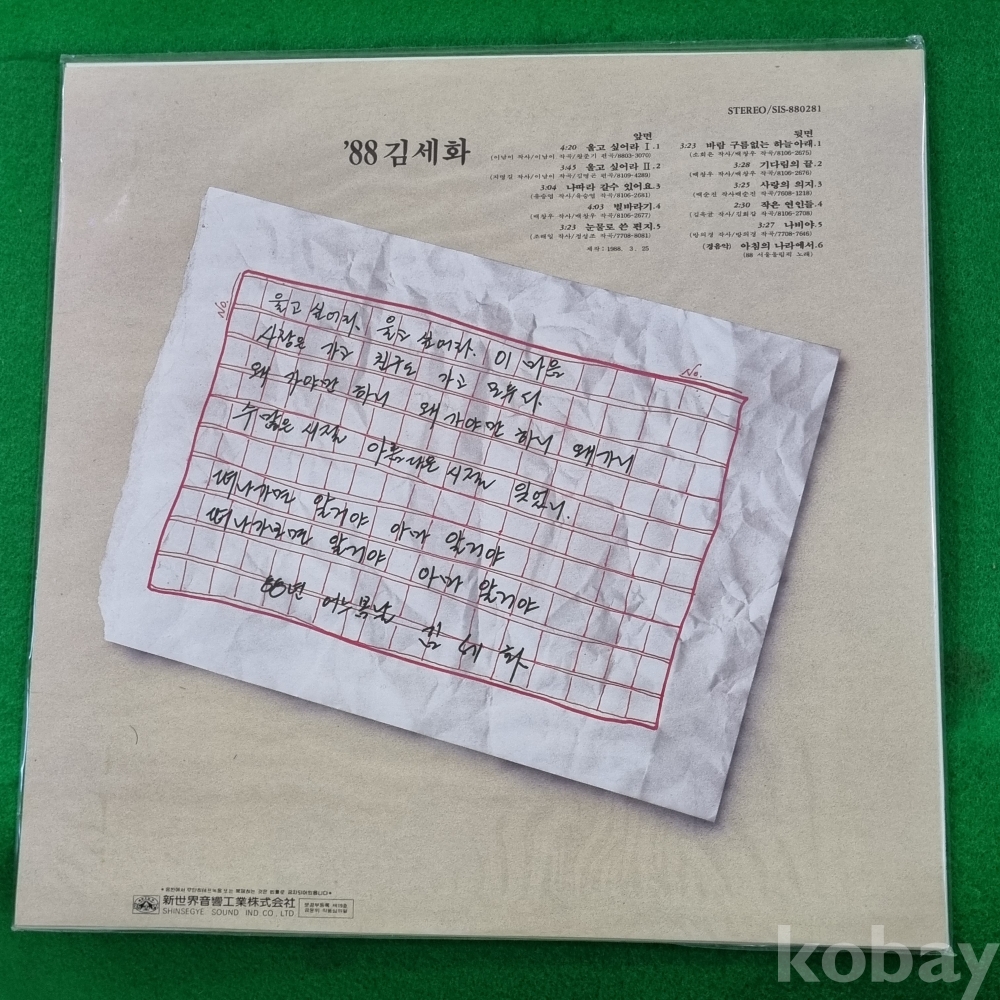 STEREO/SIS-880281
'88 김세화
앞면
4:20 울고 싶어라 Ⅰ.1
(이남이 작사/이남이 작곡/황준기 편곡/8803-3070)
3:45 울고 싶어라 Ⅱ.2
3:04 나따라 갈수 있어요.3
(유승엽 작사/유승엽 작곡/8106-2681)
4:03 별바라기.4
(배창우 작사/배창우 작곡/8106-2677)
3:23 눈물로 쓴 편지.5
(조해일 작사/정성조 작곡/7708-8081)
제작:1988. 3. 25
뒷면
3:23 바람 구름없는 하늘아래.1
3:28 기다림의 끝.2
(배창우 작사/배창우 작곡/8106-2676)
3:25 사랑의 의지.3
2:30 작은 연인들.4
(김욱균 작사/김희갑 작곡/8106-2708)
3:27 나비야.5
(방의경 작사/방의경 작곡/7708-7646)
(경음악) 아침의 나라에서.6
(88 서울올림픽 노래)
No.
No.
울고 싶어라. 울고 싶어라. 이 마음
사랑은 가고 친구도 가고 모두 다.
왜 가야만 하니 왜 가야만 하니 왜 가니
수많은 시절 아름다운 시절 잊었니.
떠나가면 알거야 아마 알거야
떠나가면 알거야 아마 알거야
88년 어느 봄날 김 세 화
新世界音響工業株式会社
SHINSEGYE SOUND IND CO., LTD
kobay